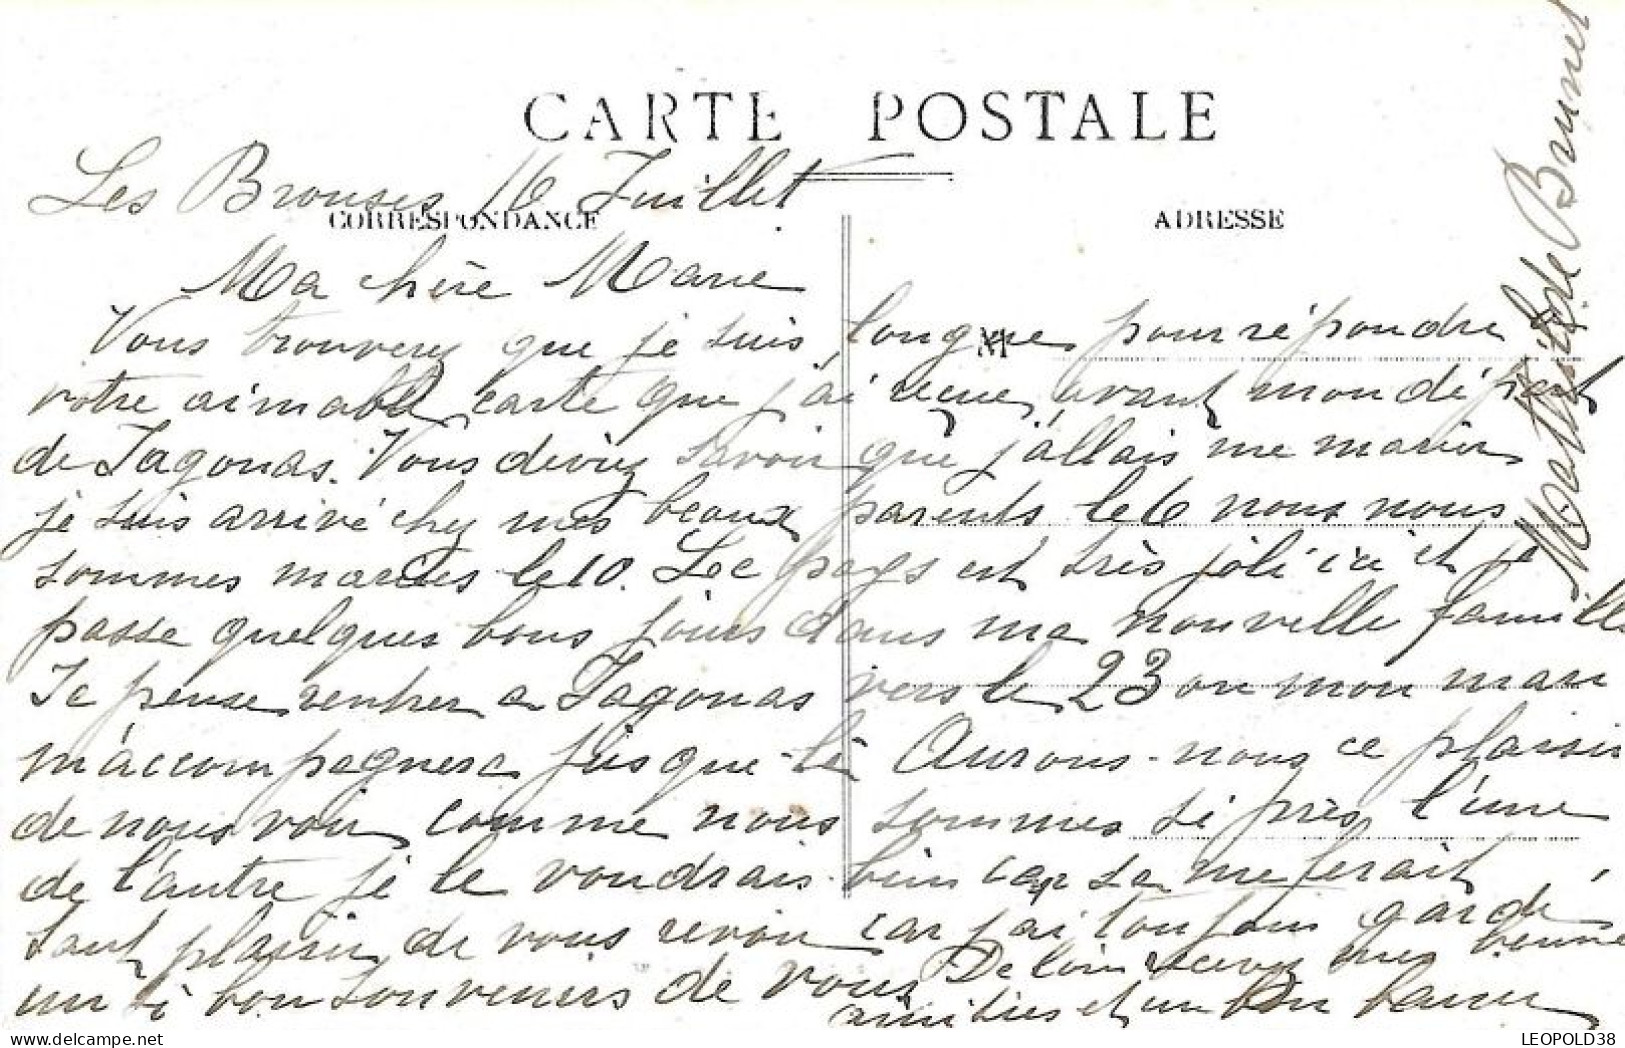 CARTE POSTALE
CORRESPONDANCE
ADRESSE
Les Brouses 16 Juillet
Ma chère Marie
Vous trouverez que je suis longue pour répondre
votre aimable carte que j'ai reçue avant mon départ
de Jagonas. Vous deviez savoir que j'allais me marier
je suis arrivé chez mes beaux parents le 6 nous nous
sommes mariés le 10. Le pays est très joli ici et je
passe quelques bons jours dans ma nouvelle famille
Je pense rentrer a Jagonas vers le 23 ou mon mari
m'accompagnera jusque-là Aurons-nous ce plaisir
de nous voir comme nous sommes si près l'une
de l'autre je le voudrais bien car sa me ferait
tant plaisir de vous revoir car j'ai toujours gardé
un si bon souvenirs de vous De loin recevez mes
amitiés et un bon baiser
Mathilde Brunel
LEOPOLD38